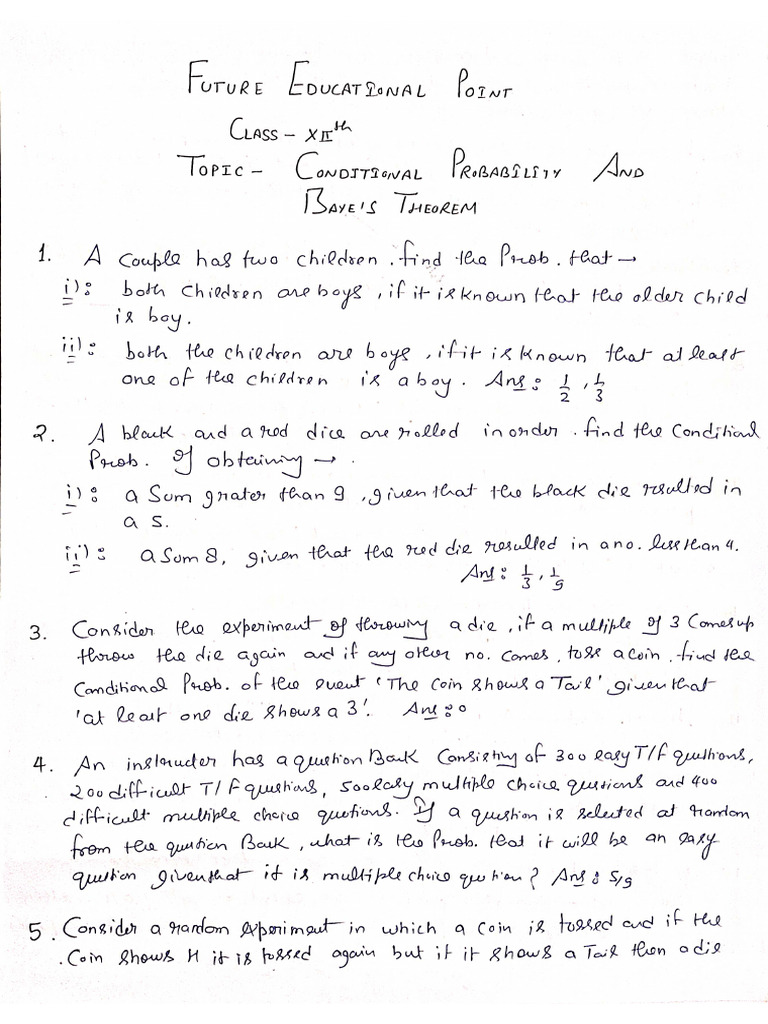 FUTURE EDUCATIONAL POINT
CLASS - XIIth
TOPIC - CONDITIONAL PROBABILITY AND
BAYE'S THEOREM
1. A couple has two children. find the Prob. that →
i): both children are boys, if it is known that the older child
is boy.
ii): both the children are boys, if it is known that at least
one of the children is a boy. Ans: 1/2, 1/3
2. A black and a red dice are rolled in order. find the Conditional
Prob. of obtaining →.
i): a Sum grater than 9, given that the black die resulted in
a 5.
ii): a Sum 8, given that the red die resulted in a no. less than 4.
Ans: 1/3, 1/9
3. Consider the experiment of throwing a die, if a multiple of 3 Comes up
throw the die again and if any other no. comes, toss a coin. find the
Conditional Prob. of the event 'The Coin shows a Tail' given that
'at least one die shows a 3'. Ans: 0
4. An instructer has a question Bank Consisting of 300 easy T/F questions,
200 difficult T/F questions, 500 easy multiple choice questions and 400
difficult multiple choice quotions. If a question is selected at random
from the question Bank, what is the Prob. that it will be an easy
question given that it is multiple choice question? Ans: 5/9
5. Consider a random experiment in which a Coin is tossed and if the
Coin shows H it is tossed again but if it shows a Tail then a die